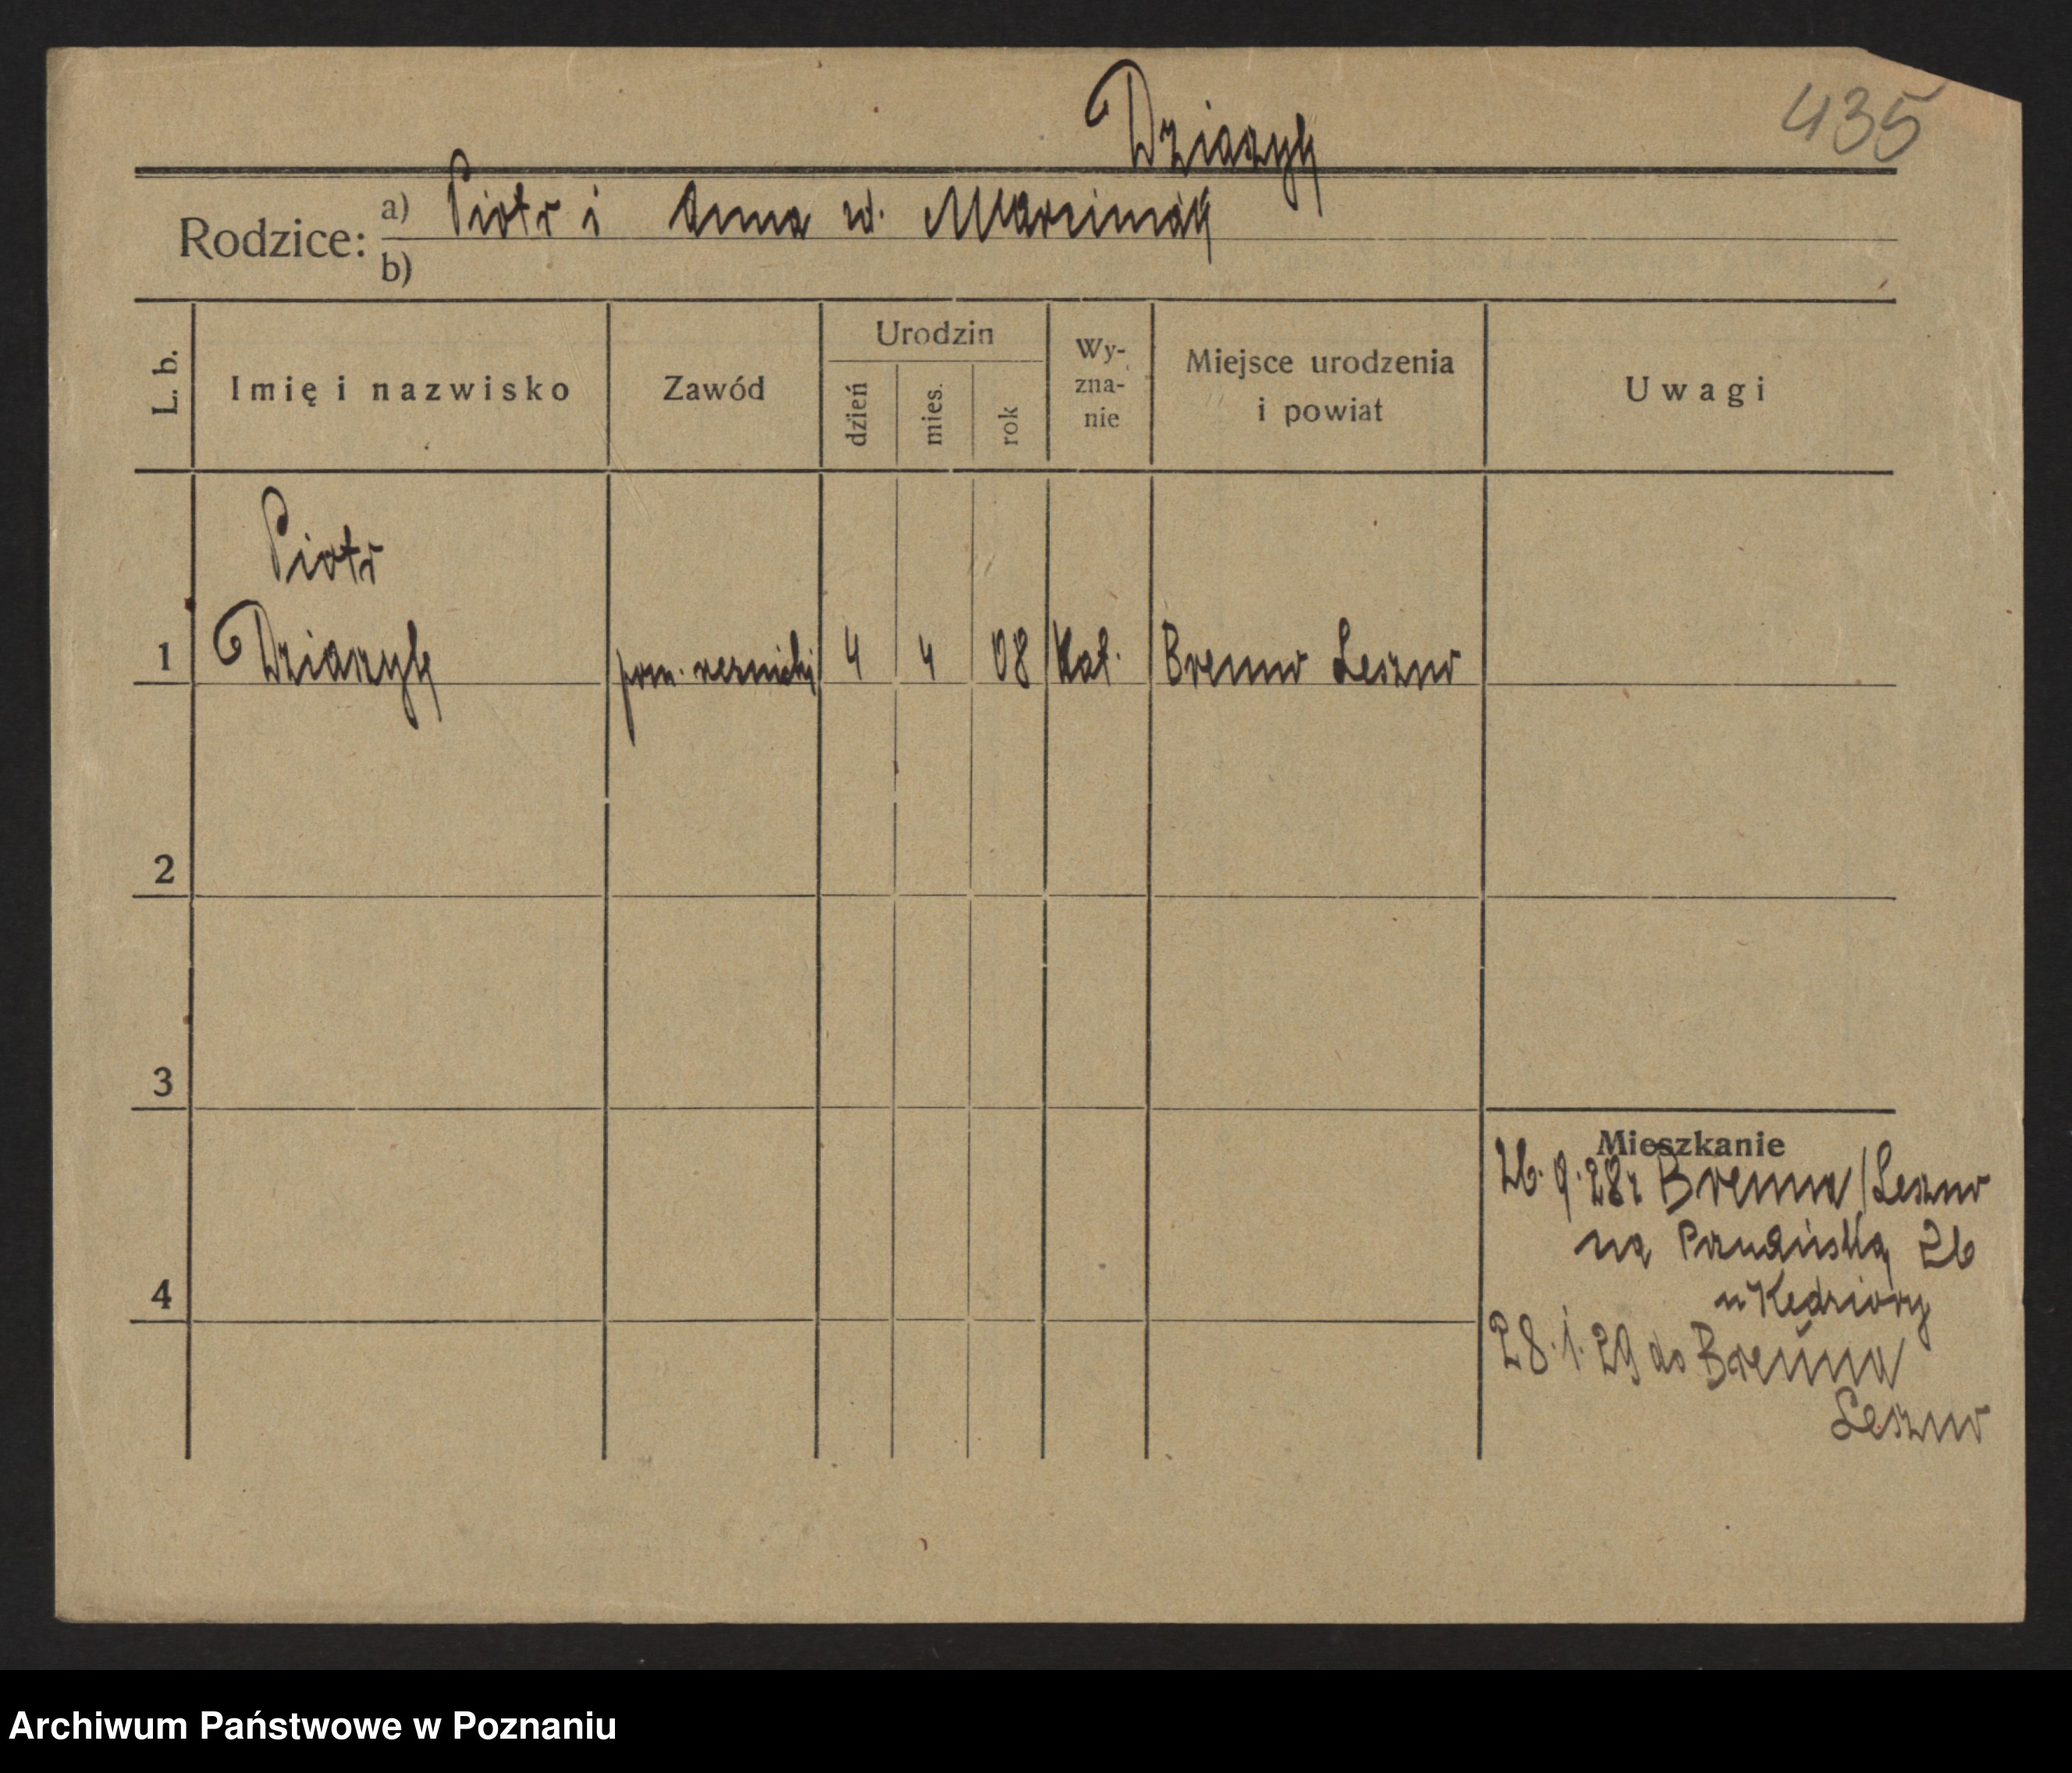 435
Dziazyk
Rodzice: a) Piotr i Anna ud. Marciniak
b)
L. b.
Imię i nazwisko
Zawód
Urodzin
dzień
mies.
rok
Wy-
zna-
nie
Miejsce urodzenia
i powiat
Uwagi
Piotr
1 Dziazyk pom. rzeźnicki 4 4 08 Kat. Brenno Leszno
2
3
4
Mieszkanie
26. 9. 28r Brenna / Leszno
na 26
u Kędziory
28. 1. 29 do Brenna
Leszno
Archiwum Państwowe w Poznaniu